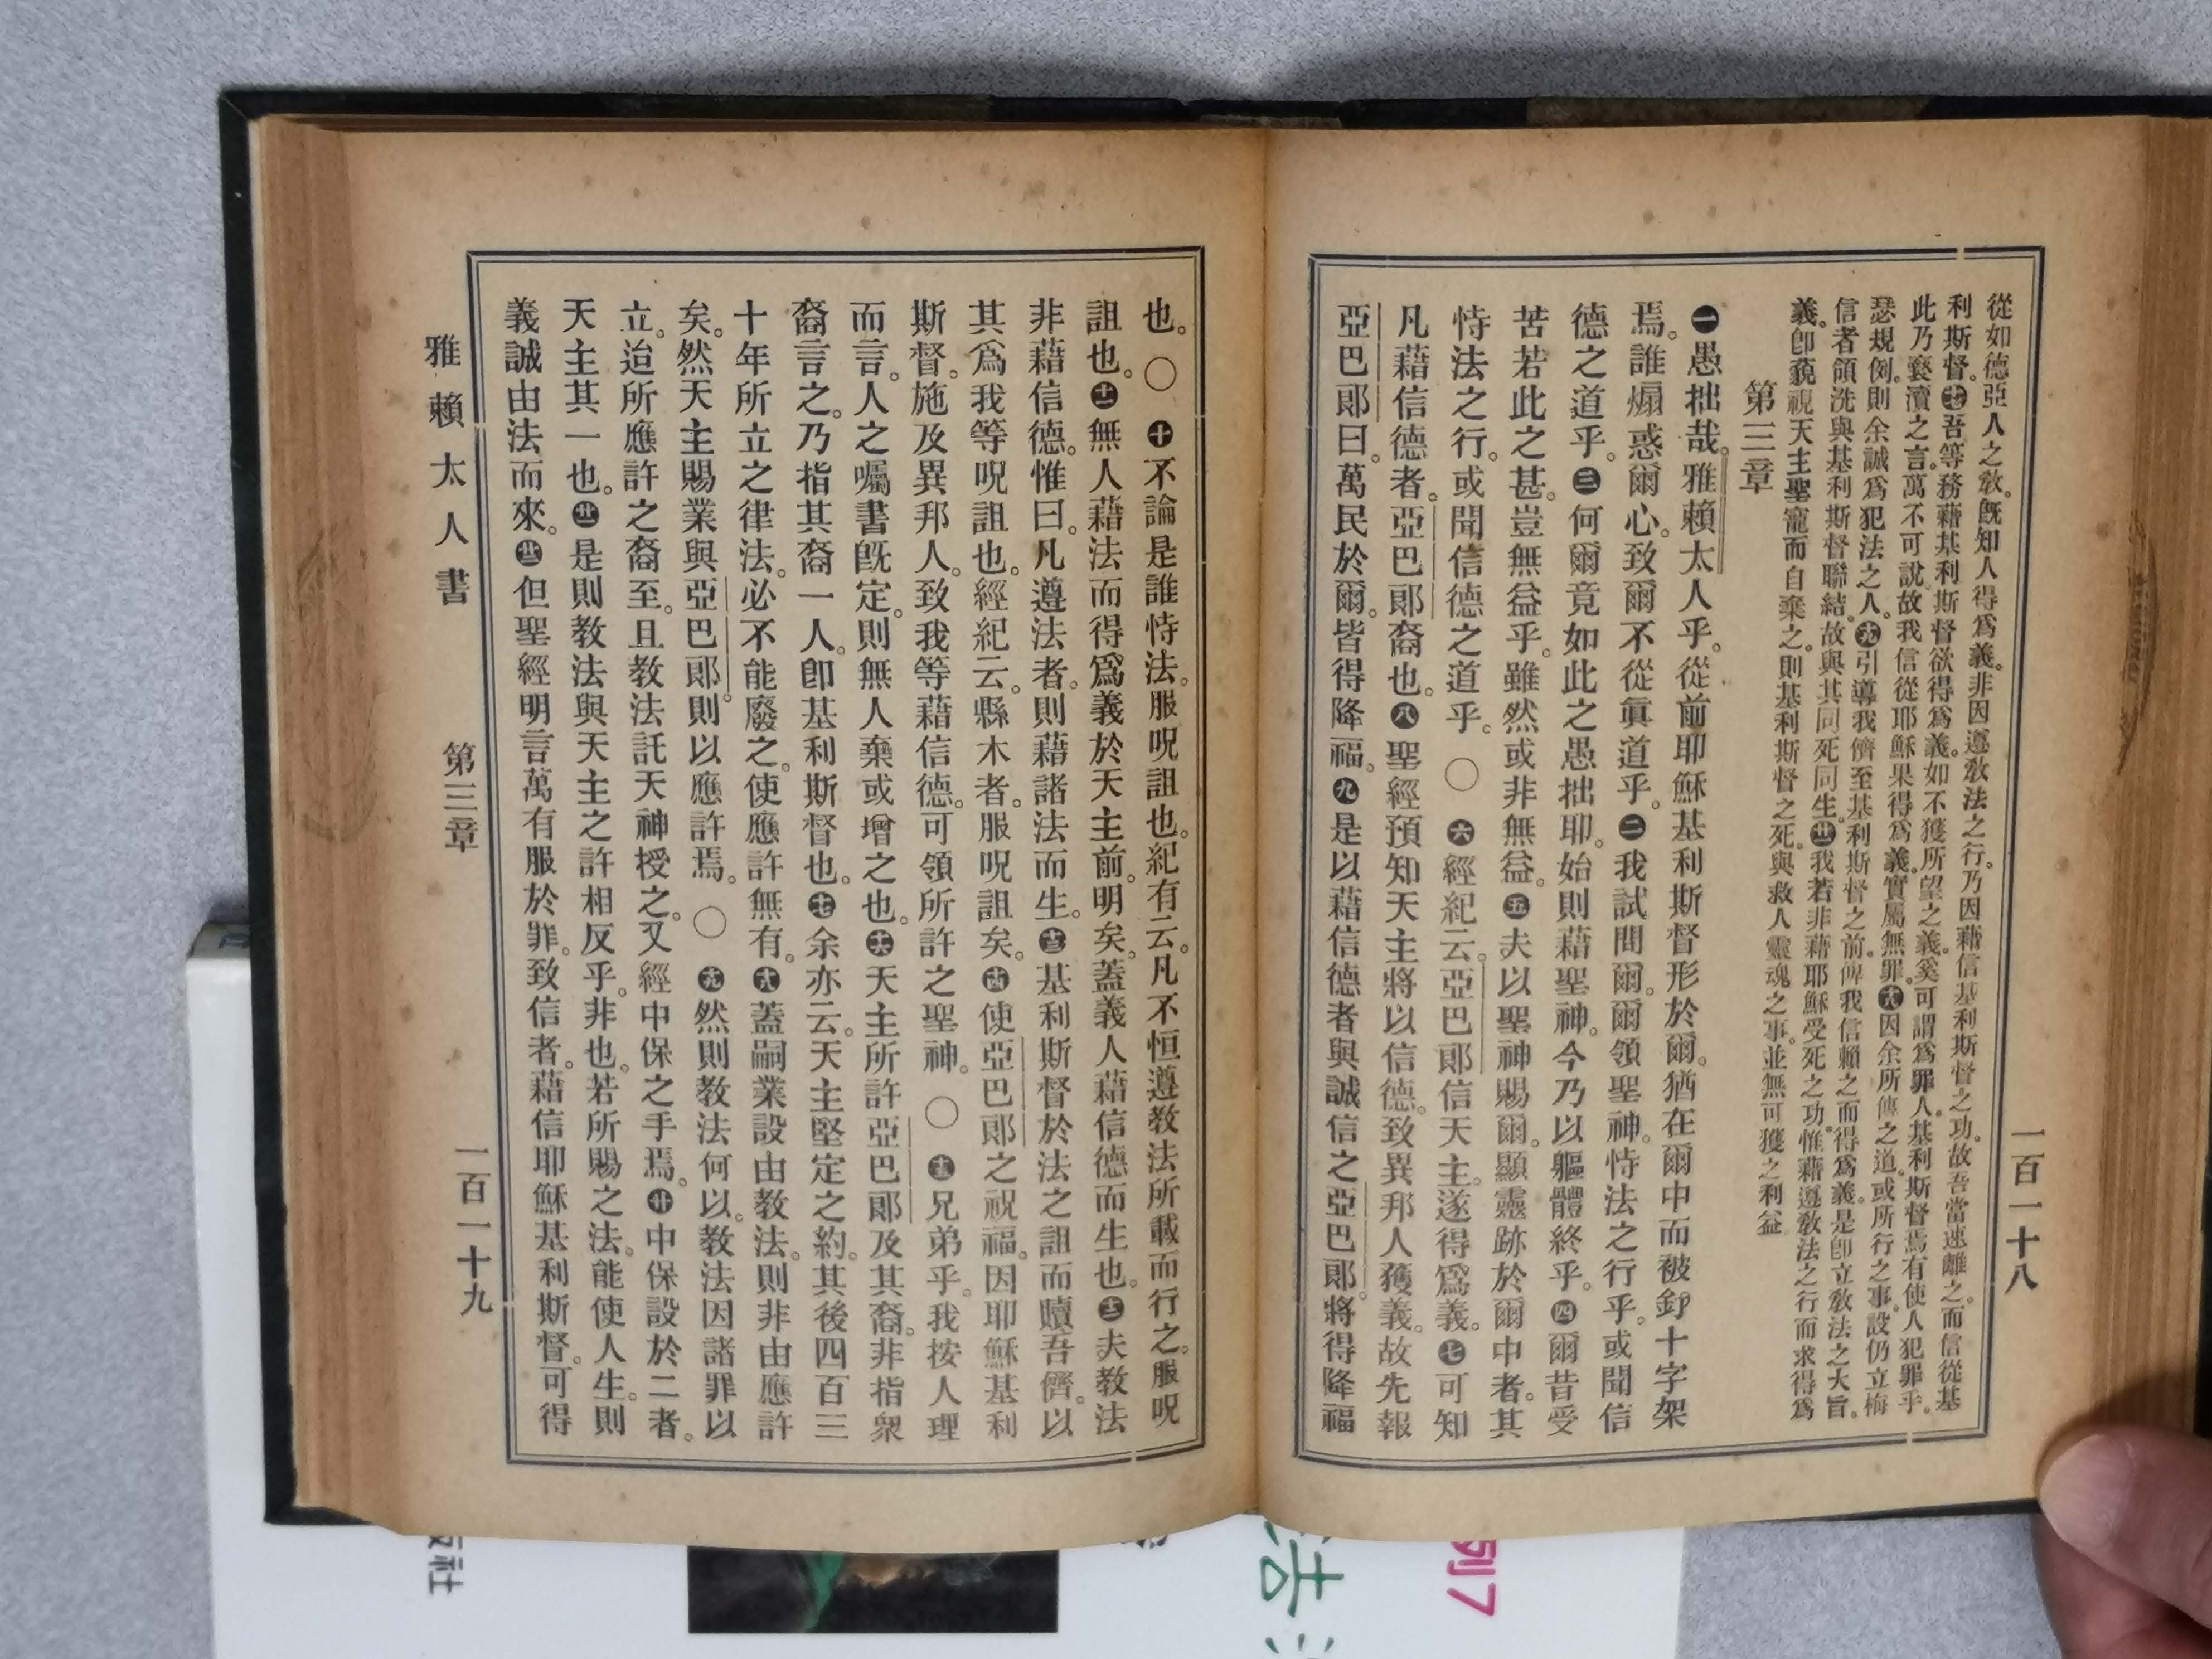 一百一十八
從如德亞人之敎。旣知人得爲義。非因遵敎法之行。乃因藉信基利斯督之功。故吾當速離之。而信從基
利斯督。十七吾等務藉基利斯督欲得爲義。如不獲所望之義。奚可謂爲罪人。基利斯督焉有使人犯罪乎。
此乃褻瀆之言。萬不可說。故我信從耶穌果得爲義。實屬無罪。十八因余所傳之道。或所行之事。設仍立梅
瑟規例。則余誠爲犯法之人。十九引導我儕至基利斯督之前。俾我信賴之而得爲義。是卽立敎法之大旨。
信者領洗與基利斯督聯結。故與其同死同生。廿我若非藉耶穌受死之功。惟藉遵敎法之行而求得爲
義。卽藐視天主聖寵而自棄之。則基利斯督之死。與救人靈魂之事。並無可獲之利益
第三章
一愚拙哉。雅賴太人乎。從前耶穌基利斯督形於爾。猶在爾中而被釘十字架
焉。誰煽惑爾心。致爾不從眞道乎。二我試問爾。爾領聖神。恃法之行乎。或聞信
德之道乎。三何爾竟如此之愚拙耶。始則藉聖神。今乃以軀體終乎。四爾昔受
苦若此之甚。豈無益乎。雖然或非無益。五夫以聖神賜爾。顯靈跡於爾中者。其
恃法之行。或聞信德之道乎。〇六經紀云。亞巴郞信天主。遂得爲義。七可知
凡藉信德者。亞巴郞裔也。八聖經預知天主將以信德。致異邦人獲義。故先報
亞巴郞曰。萬民於爾。皆得降福。九是以藉信德者與誠信之亞巴郞。將得降福
也。〇十不論是誰恃法。服呪詛也。紀有云。凡不恒遵敎法所載而行之。服呪
詛也。十一無人藉法而得爲義於天主前。明矣。蓋義人藉信德而生也。十二夫敎法
非藉信德。惟曰。凡遵法者。則藉諸法而生。十三基利斯督於法之詛而贖吾儕。以
其爲我等呪詛也。經紀云。縣木者。服呪詛矣。十四使亞巴郞之祝福。因耶穌基利
斯督。施及異邦人。致我等藉信德。可領所許之聖神。〇十五兄弟乎。我按人理
而言。人之囑書旣定。則無人棄或增之也。十六天主所許亞巴郞及其裔。非指衆
裔言之。乃指其裔一人。卽基利斯督也。十七余亦云。天主堅定之約。其後四百三
十年所立之律法。必不能廢之。使應許無有。十八蓋嗣業設由敎法。則非由應許
矣。然天主賜業與亞巴郞。則以應許焉。〇十九然則敎法何以。敎法因諸罪以
立。迨所應許之裔至。且敎法託天神授之。又經中保之手焉。廿中保設於二者。
天主其一也。廿一是則敎法與天主之許相反乎。非也。若所賜之法。能使人生。則
義誠由法而來。廿二但聖經明言萬有服於罪。致信者。藉信耶穌基利斯督。可得
雅賴太人書　第三章　一百一十九
列7